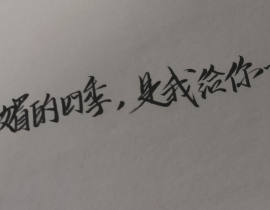 媚的四季，是我给你